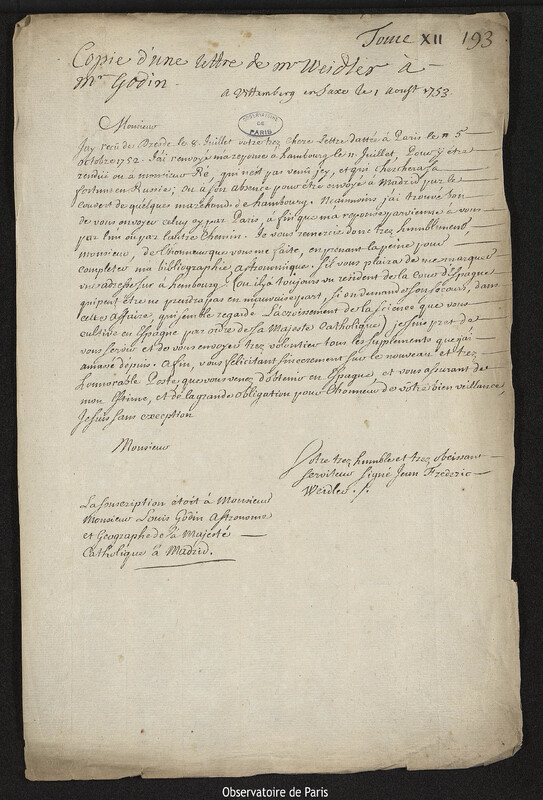 Tome XII 193
Copie d'une lettre de mr Weidler à
mr Godin
A Vittemberg en Saxe le 1 aoust 1753.
OBSERVATOIRE DE PARIS
Monsieur
Jay reçu de Dresde le 8. Juillet votre trez chere lettre dattée à Paris le 5
octobre 1752. J'ai renvoyé ma reponse à hambourg le 11 Juillet, pour y être
rendüe ou à monsieur Ré, qui n'est pas venu icy, et qui cherchera sa
fortune en Russie; ou à son absence pour être envoyé à Madrid par le
couvert de quelques marchands de hambourg. Neanmoins j'ai trouvé bon
de vous envoyer celuy cy par Paris, à fin que ma reponse parvienne à vous
par l'un ou par l'autre chemin. Je vous remercie donc trez humblement,
monsieur, de l'honneur que vous me faite, en prenant la peine pour
completer ma bibliographie astronomique. S'il vous plaira de me marquer
une adresse sur à hambourg (ou il y à toujours un resident de la Cour d'Espagne
qui peut être ne prendra pas en mauvaise part, si on demande son secours, dans
cette affaire, qui semble regarder l'accroissement de la science que vous
cultive en Espagne par ordre de Sa Majesté Catholique) je suis pret de
vous servir et de vous envoyer trez volontier tous les supplements que j'ai
amassé depuis. Afin, vous felicitant sincerement sur le nouveau et trez
honorable Poste que vous venez d'obtenir en Espagne, et vous assurant de
mon Estime, et de la grande obligation pour l'honneur de votre bien veillance,
Je suis sans exception
Monsieur
Votre trez humble et trez obeissant
serviteur signé Jean Frederic
Weidler.
La souscription étoit à Monsieur
Monsieur Louis Godin Astronome
et Geographe de sa Majesté
Catholique à Madrid.
Observatoire de Paris